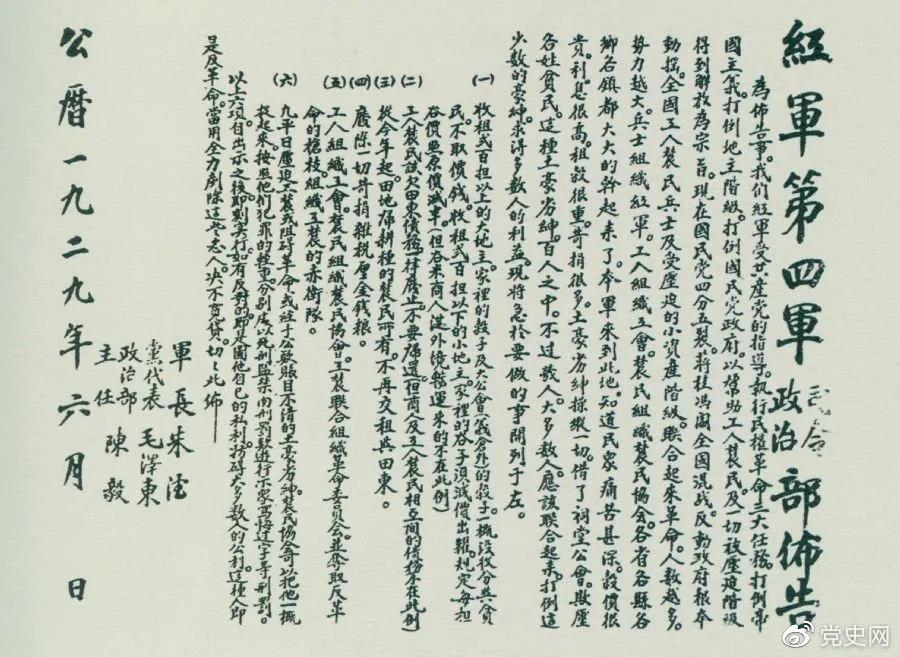 紅軍第四軍司令政治部佈告
為佈告事。我们紅軍受共產党的指導。執行民權革命三大任務。打倒帝
國主義。打倒地主階級。打倒國民党政府。以幫助工人農民及一切被壓迫階級
得到解放為宗旨。現在國民党四分五裂。蔣桂馮閻全國混战。反動政府根本
動搖。全國工人農民兵士及受壓迫的小資產階級。联合起來革命。人數越多。
势力越大。兵士組織紅軍。工人組織工會。農民組織農民協会。各省各縣各
鄉各镇都大大的幹起来了。本軍来到此地。知道民眾痛苦甚深。穀價很
貴。利息很高。租穀很重。苛捐很多。土豪劣紳操縱一切。借了祠堂公會。欺壓
各姓貧民。這種土豪劣紳。百人之中。不过数人。大多数人。應該联合起来。打倒這
少数的豪紳。求得多数人的利益。現将急於要做的事開列于左。
(一)收租弍百担以上的大地主。家裡的穀子及大公會(義倉外)的穀子一概没收分與貧
民。不取價钱。收租弍百担以下的小地主。家裡的谷子減價出糶。規定每担
谷價照原價減半。(但谷米商人從外境販運来的不在此例)
(二)工人農民該欠田東債務一律廢止。不要歸還。(但商人及工人農民相互間的債務不在此例)
(三)從今年起。田地歸耕種的農民所有。不再交租與田東。
(四)廢除一切苛捐雜稅厘金錢粮。
(五)工人組織工會。農民組織農民協會。工農联合組織革命委員会。並奪取反革
命的槍枝。組織工農的赤衛隊。
(六)凡平日壓迫工農或阻碍革命。或经手公款賬目不清的土豪劣紳。農民協会可以把他一概
捉起来。按照他们犯罪的輕重。分别處以死刑監禁肉刑罰款遊行示眾寫悔过字等刑罰。
以上六項自出示之後。即刻实行。如有反對的。即是圖他自己的私利。妨碍大多数人的公利。這種人即
是反革命。當用全力剷除這些惡人。决不寬貸。切切此佈——
軍長朱德
黨代表毛澤東
政治部主任陳毅
公曆一九二九年六月 日
党史网